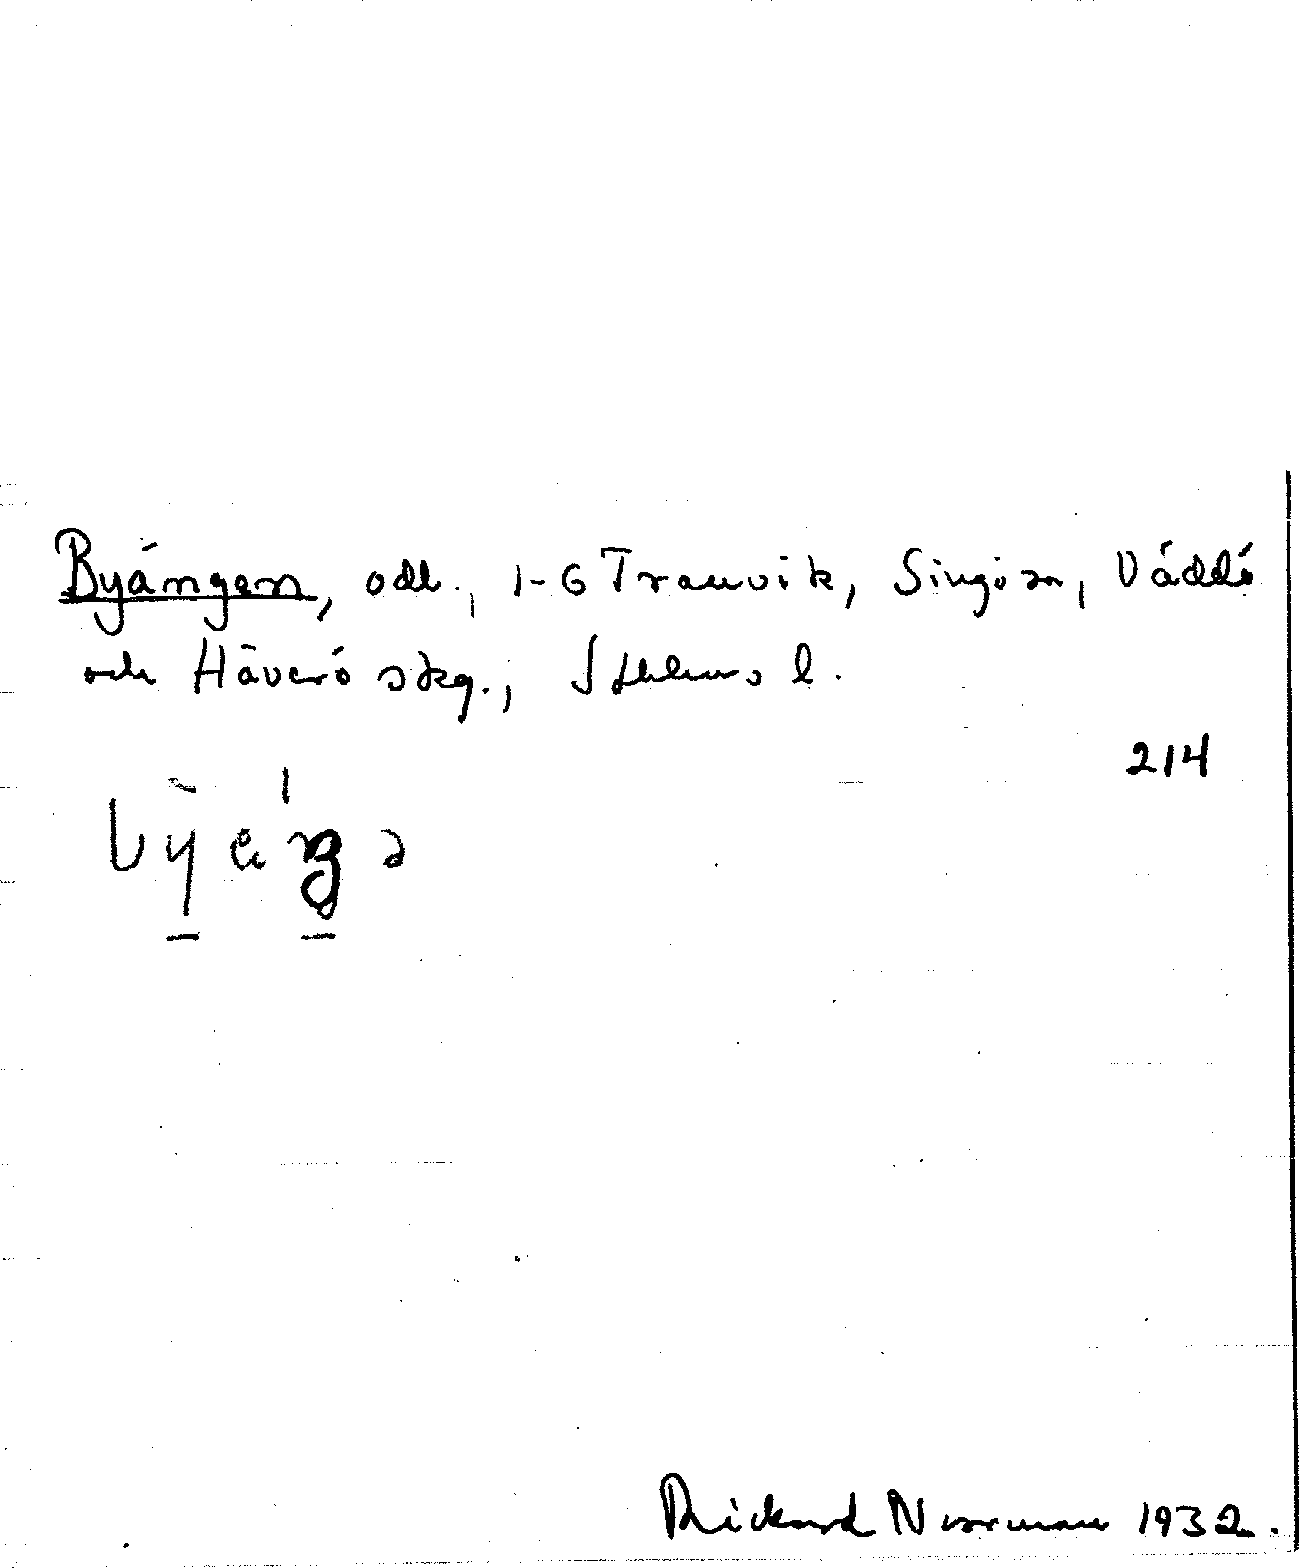 Byängen, odl., 1-6 Tranvik, Singö sn, Väddö
och Häverö skg., Sthlms l.
214
Rickard Norman 1932.